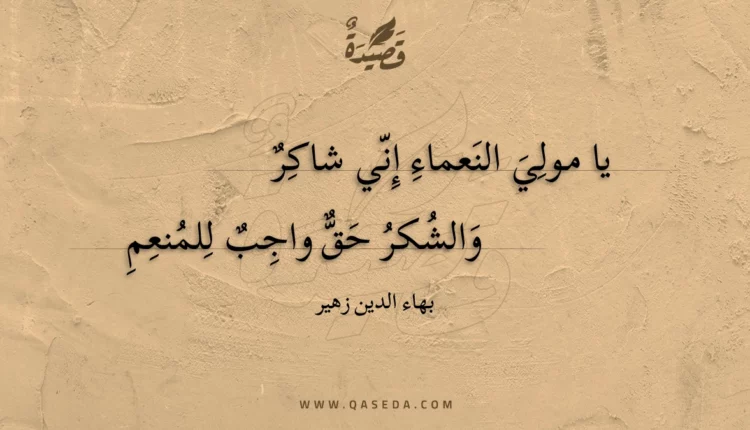 قَصِيْدَةٌ
يا مولِيَ النَعماءِ إِنّي شاكِرٌ
وَالشُكرُ حَقٌّ واجِبٌ لِلمُنعِمِ
بهاء الدين زهير
WWW.QASEDA.COM